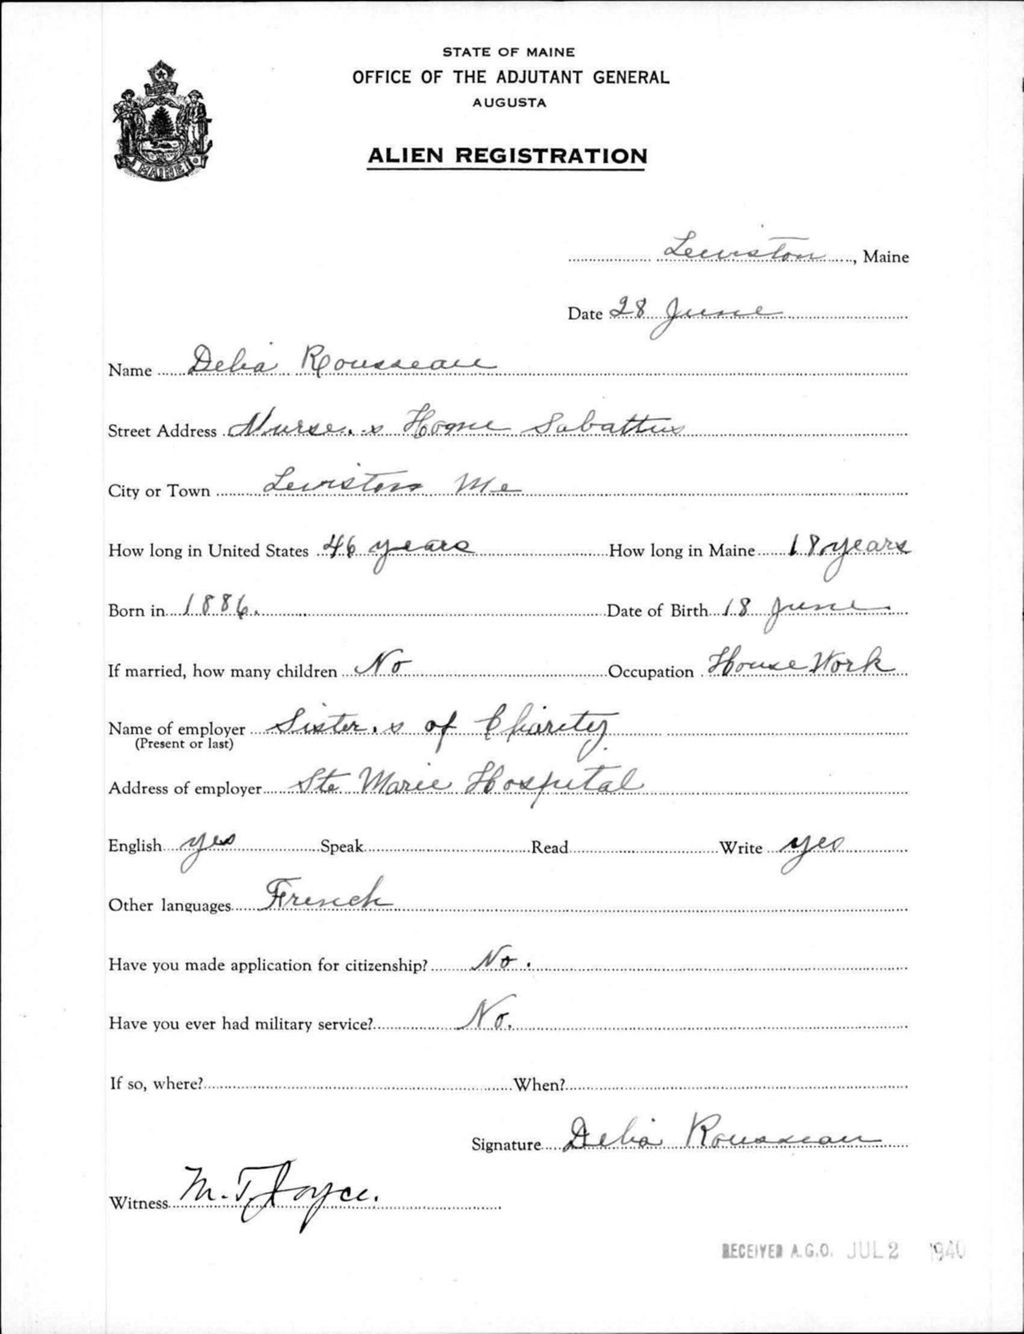 STATE OF MAINE
OFFICE OF THE ADJUTANT GENERAL
AUGUSTA
ALIEN REGISTRATION
MAINE
Lewiston, Maine
Date 28 June
Name Delia Rousseau
Street Address Nurse,s Home Sabattus
City or Town Lewiston Me
How long in United States 46 years How long in Maine 18 years
Born in 1886. Date of Birth 18 June
If married, how many children No Occupation House Work
Name of employer Sister,s of Charity
(Present or last)
Address of employer Ste Marie Hospital
English yes Speak Read Write yes
Other languages French
Have you made application for citizenship? No.
Have you ever had military service? No.
If so, where? When?
Signature Delia Rousseau
Witness M. T. Joyce.
RECEIVED A.G.O. JUL 2 1940